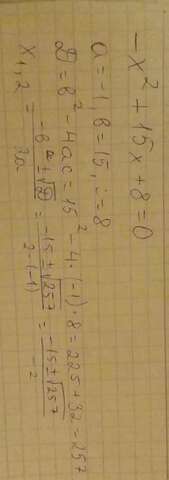 -x² + 15x + 8 = 0
a = -1, в = 15, c = 8
D = в² - 4ac = 15² - 4·(-1)·8 = 225 + 32 = 257
x₁,₂ = (-в ± √D)/2a = (-15 ± √257)/(2·(-1)) = (-15 ± √257)/(-2)